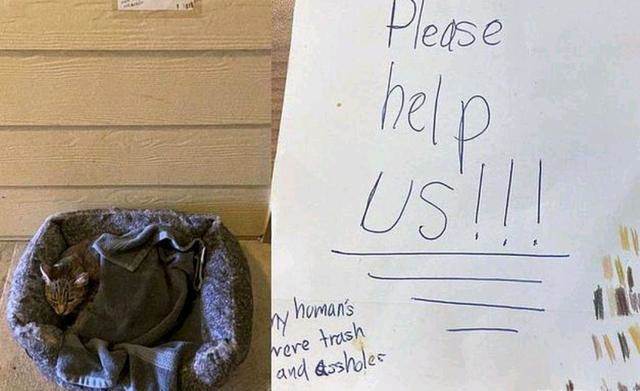 Please
help
US!!!
my human's
were trash
and assholes